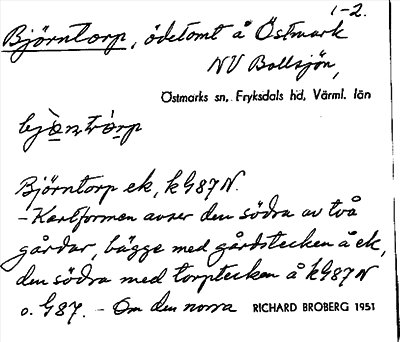 1-2.
Björntorp, ödetomt å Östmark
NV Bollsjön,
Östmarks sn, Fryksdals hd, Värml. län
bjò̱n,tró̱rp
Björntorp ek, k G87N.
- Kartformen avser den södra av två
gårdar, bägge med gårdstecken å ek,
den södra med torptecken å k G87N
o. G87. - Om den norra RICHARD BROBERG 1951